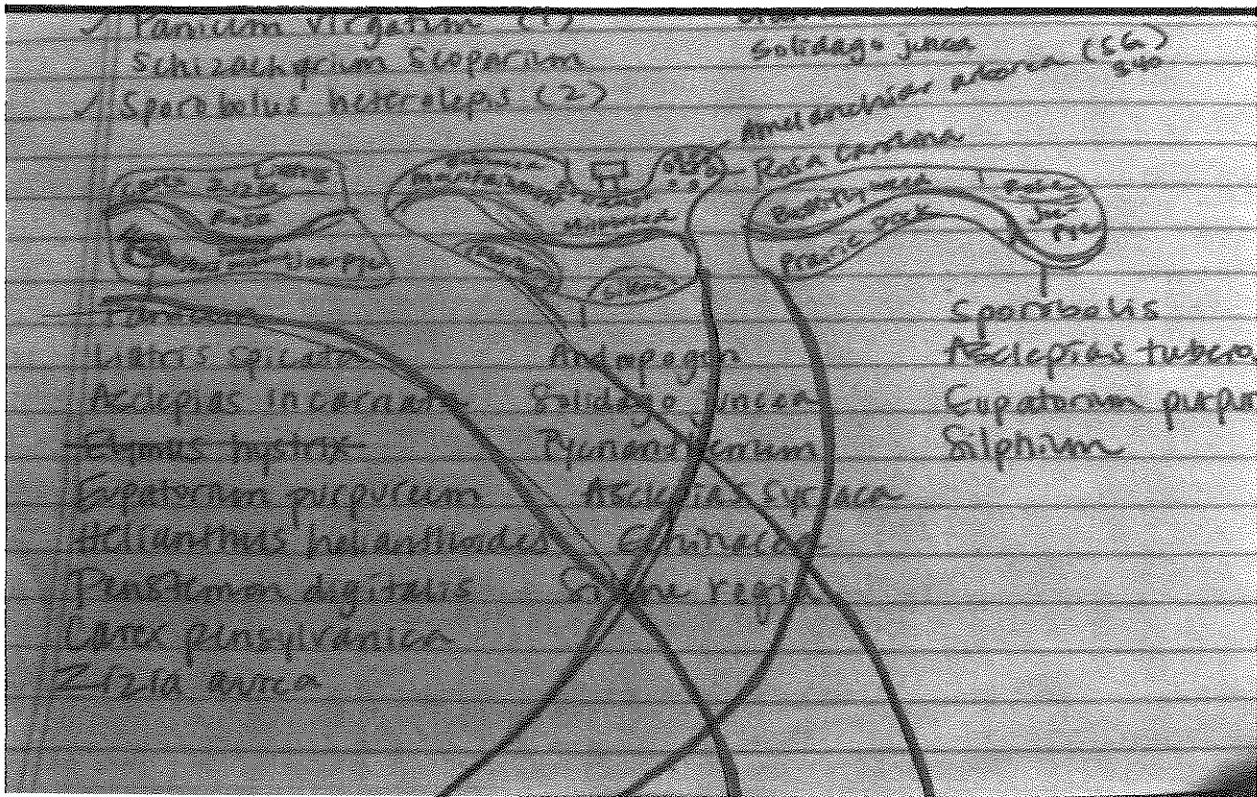 ✓ Panicum virgatum (1)
Schizachyrium Scoparium
✓ Sporobolus heterolepis (2)
Solidago juncea
Amelanchier arborea (5G)
340
Rosa Carolina
Zizia
Rose
Joe-Pye
Milkweed
Silene
Butterflyweed
Prairie Dock
Rose
Joe-
Pye
Liatris spicata
Asclepias incarnata
Elymus hystrix
Eupatorium purpureum
Helianthus helianthoides
Penstemon digitalis
Carex pensylvanica
Zizia aurea
Andropogon
Solidago juncea
Pycnanthemum
Asclepias syriaca
Echinacea
Silene regia
Sporobolis
Asclepias tubero
Eupatorium purpur
Silphium